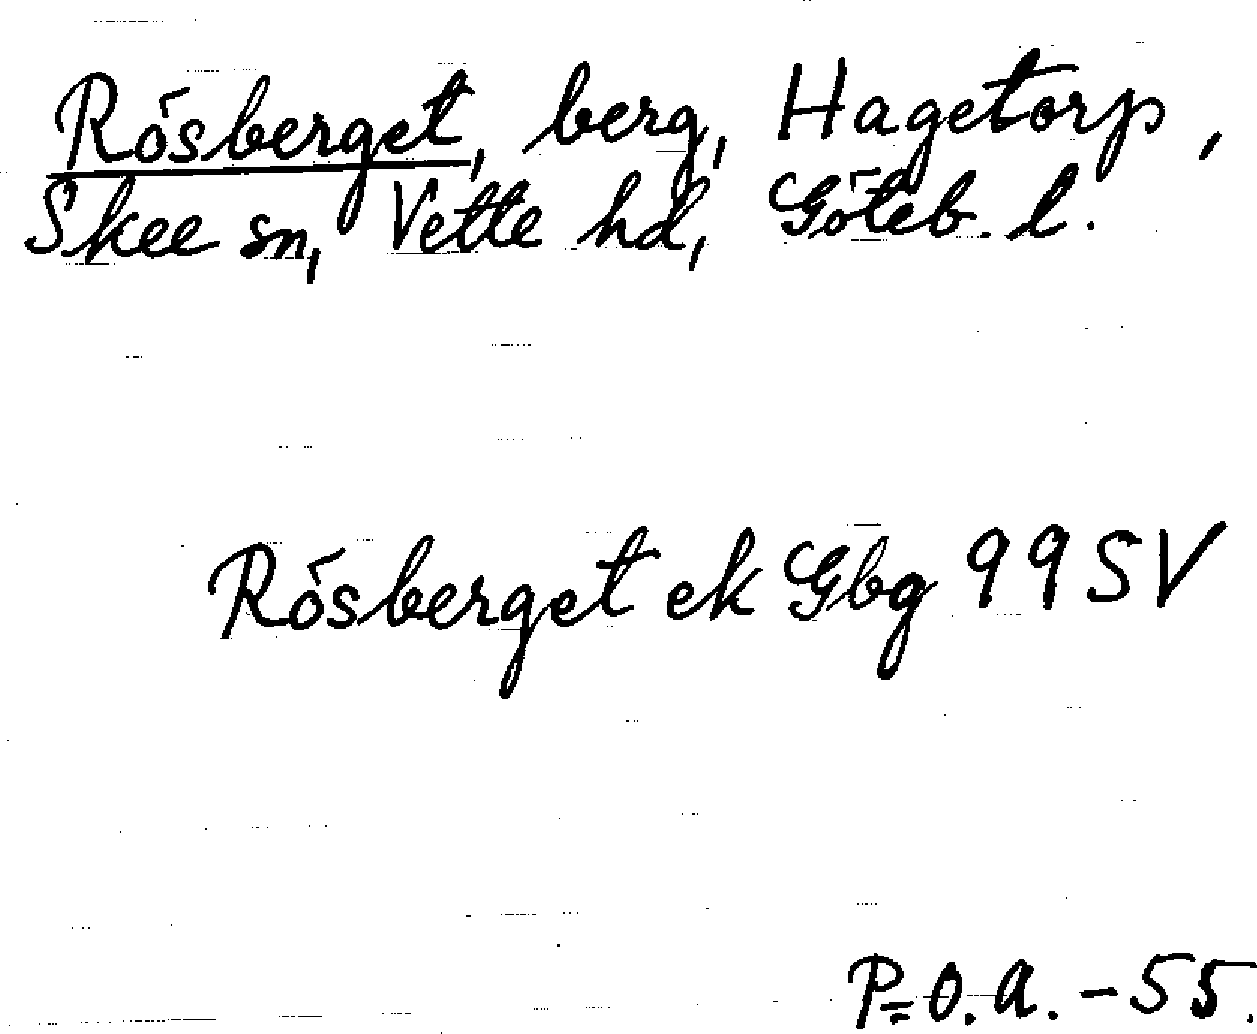 Rösberget, berg, Hagetorp,
Skee sn, Vette hd, Göteb. l.
Rösberget ek Gbg 99 SV
P=O.A. - 55.